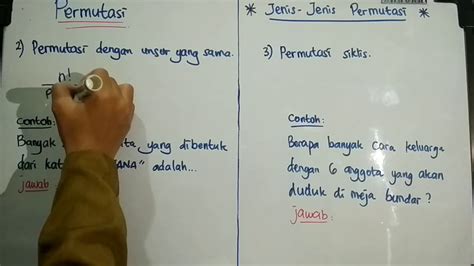 Permutasi
2) Permutasi dengan unsur yang sama.
n!
P
Contoh:
Banyak ta yang dibentuk
dari kat ANA" adalah...
jawab
* Jenis-Jenis Permutasi *
3) Permutasi siklis.
Contoh:
Berapa banyak cara keluarga
dengan 6 anggota yang akan
duduk di meja bundar?
jawab: